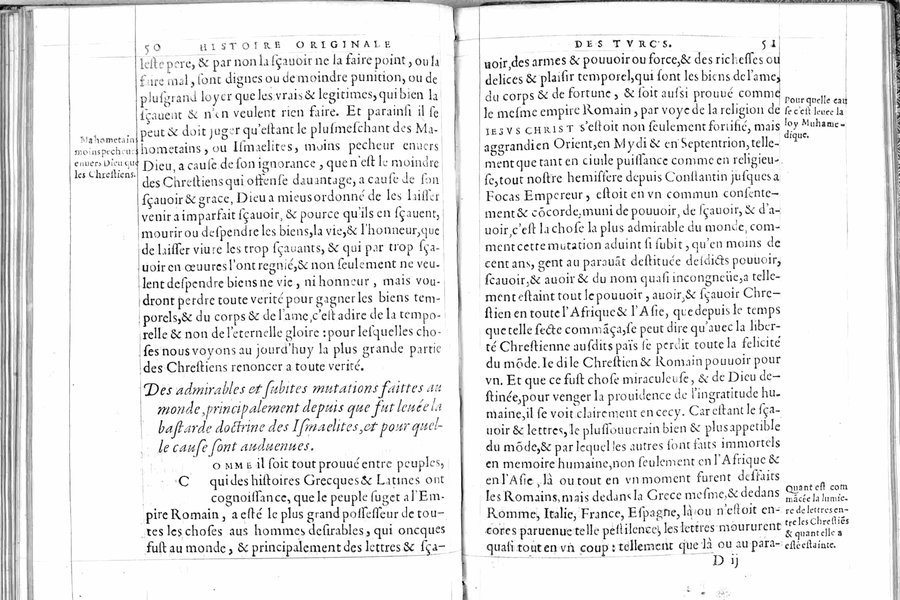 50 HISTOIRE ORIGINALE
leste pere, & par non la sçauoir ne la faire point, ou la
faire mal, sont dignes ou de moindre punition, ou de
plusgrand loyer que les vrais & legitimes, qui bien la
sçauent & n'en veulent rien faire. Et parainsi il se
peut & doit juger qu'estant le plusmeschant des Ma-
hometains, ou Ismaelites, moins pecheur enuers
Dieu, a cause de son ignorance, que n'est le moindre
des Chrestiens qui offense dauantage, a cause de son
sçauoir & grace, Dieu a mieus ordonné de les laisser
venir a imparfait sçauoir, & pource qu'ils en sçauent,
mourir ou despendre les biens, la vie, & l'honneur, que
de laisser viure les trop sçauants, & qui par trop sça-
uoir en œuures l'ont regnié, & non seulement ne veu-
lent despendre biens ne vie, ni honneur, mais vou-
dront perdre toute verité pour gagner les biens tem-
porels, & du corps & de l'ame, c'est adire de la tempo-
relle & non de l'eternelle gloire: pour lesquelles cho-
ses nous voyons au jourd'huy la plus grande partie
des Chrestiens renoncer a toute verité.
Mahometains
moins pecheurs
enuers Dieu que
les Chrestiens.
Des admirables et subites mutations faittes au
monde, principalement depuis que fut leuée la
bastarde doctrine des Ismaelites, et pour quel-
le cause sont auduenues.
COMME il soit tout prouué entre peuples,
qui des histoires Grecques & Latines ont
cognoissance, que le peuple suget a l'Em-
pire Romain, a esté le plus grand possesseur de tou-
tes les choses aus hommes desirables, qui oncques
fust au monde, & principalement des lettres & sça-
DES TVRCS. 51
uoir, des armes & pouuoir ou force, & des richesses ou
delices & plaisir temporel, qui sont les biens de l'ame,
du corps & de fortune, & soit aussi prouué comme
le mesme empire Romain, par voye de la religion de
IESVS CHRIST s'estoit non seulement fortifié, mais
aggrandi en Orient, en Mydi & en Septentrion, telle-
ment que tant en ciuile puissance comme en religieu-
se, tout nostre hemisfere depuis Constantin jusques a
Focas Empereur, estoit en vn commun consente-
ment & cõcorde, muni de pouuoir, de sçauoir, & d'a-
uoir, c'est la chose la plus admirable du monde, com-
ment cette mutation aduint si subit, qu'en moins de
cent ans, gent au parauãt destituée desdicts pouuoir,
scauoir, & auoir & du nom quasi incongneüe, a telle-
ment estaint tout le pouuoir, auoir, & sçauoir Chre-
stien en toute l'Afrique & l'Asie, que depuis le temps
que telle secte commãça, se peut dire qu'auec la liber-
té Chrestienne ausdits païs se perdit toute la felicité
du mõde. Ie di le Chrestien & Romain pouuoir pour
vn. Et que ce fust chose miraculeuse, & de Dieu de-
stinée, pour venger la prouidence de l'ingratitude hu-
maine, il se voit clairement en cecy. Car estant le sça-
uoir & lettres, le plus souuerain bien & plus appetible
du mõde, & par lequel les autres sont faits immortels
en memoire humaine, non seulement en l'Afrique &
en l'Asie, là ou tout en vn moment furent deffaits
les Romains, mais dedans la Grece mesme, & dedans
Romme, Italie, France, Espagne, là ou n'estoit en-
cores paruenue telle pestilence, les lettres moururent
quasi tout en vn coup: tellement que là ou au para-
D ij
Pour quelle cau
se c'est leuée la
loy Muhame-
dique.
Quant est com
mãcée la lumie-
re de lettres en-
tre les Chrestiẽs
& quant elle a
esté estainte.